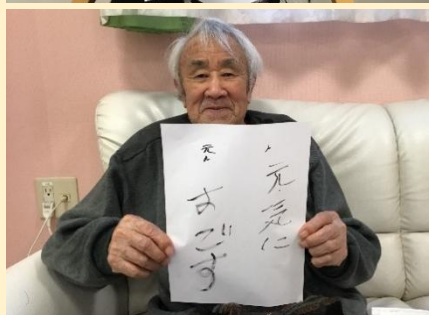 元気に
すごす